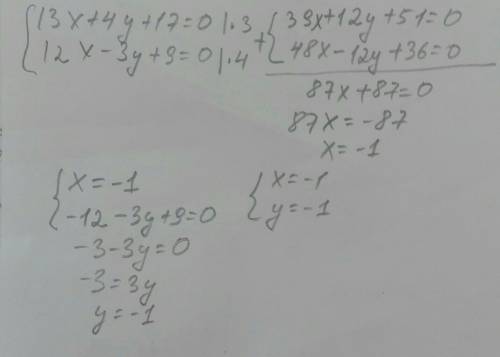 {13x+4y+17=0 |·3
{12x-3y+9=0 |·4
+ {39x+12y+51=0
{48x-12y+36=0
87x+87=0
87x=-87
x=-1
{x=-1
{-12-3y+9=0
-3-3y=0
-3=3y
y=-1
{x=-1
{y=-1